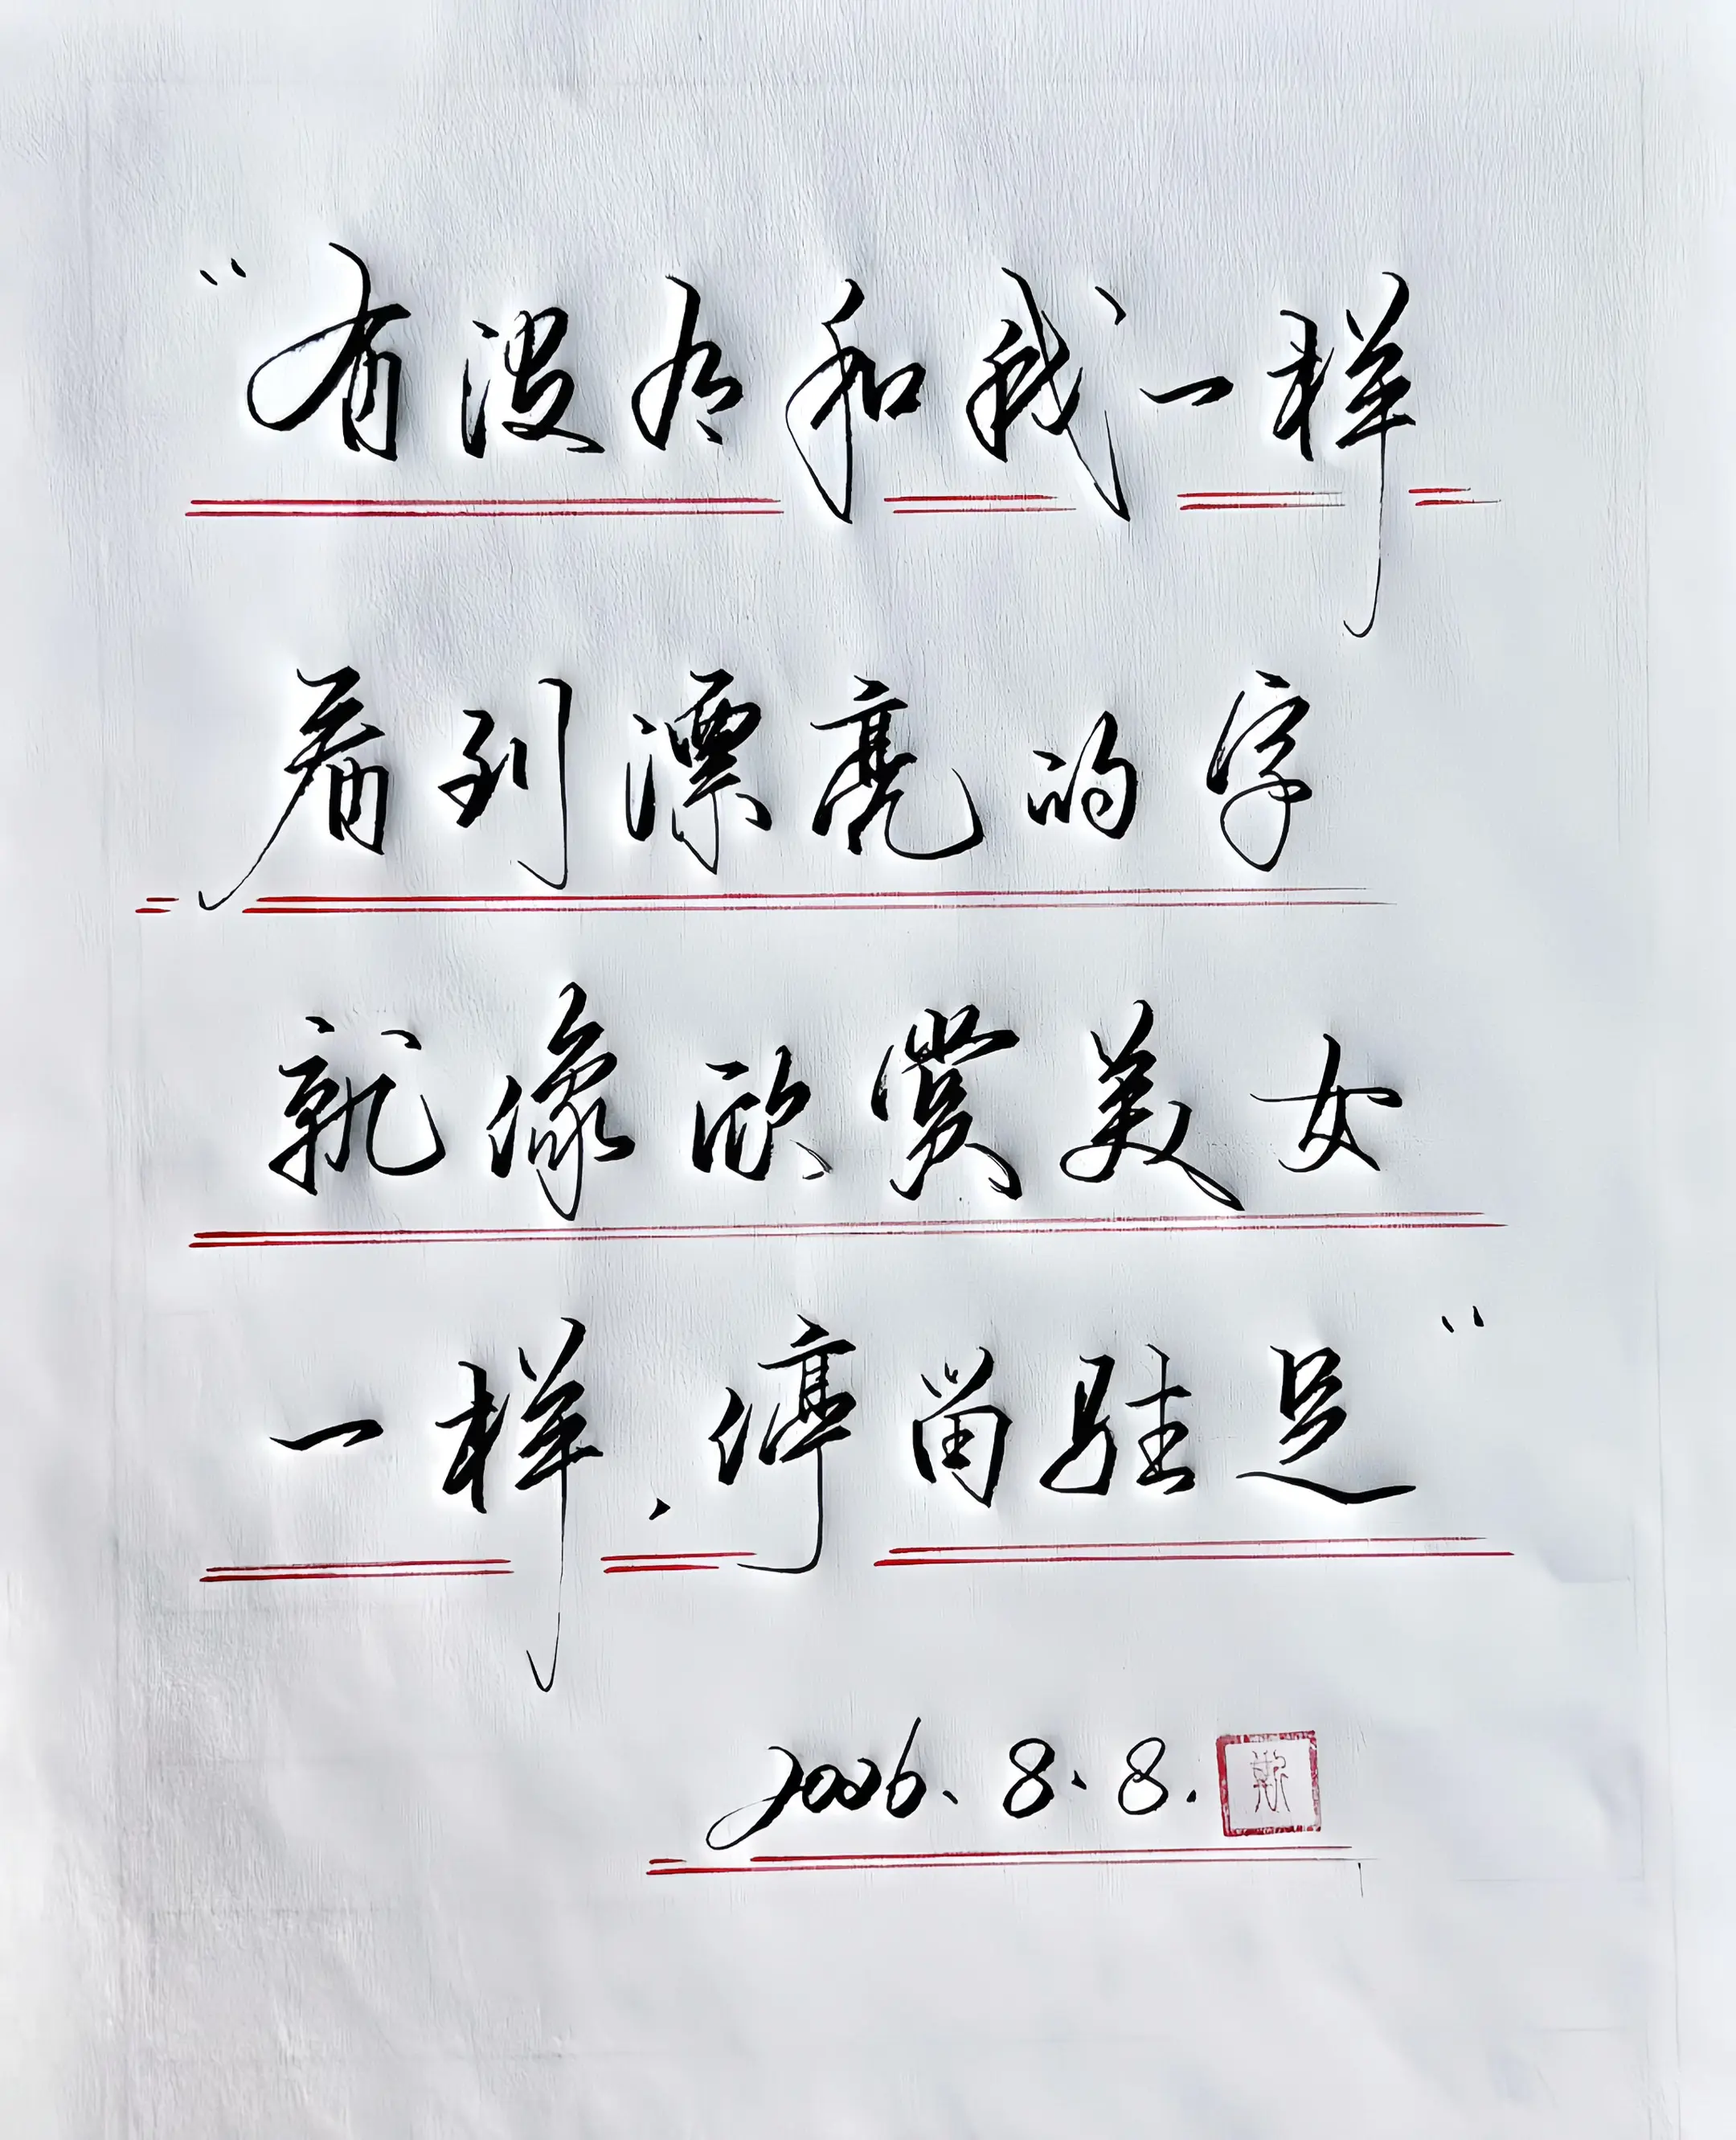 “有没有和我一样
看到漂亮的字
就像欣赏美女
一样，停留驻足”
2026.8.8.